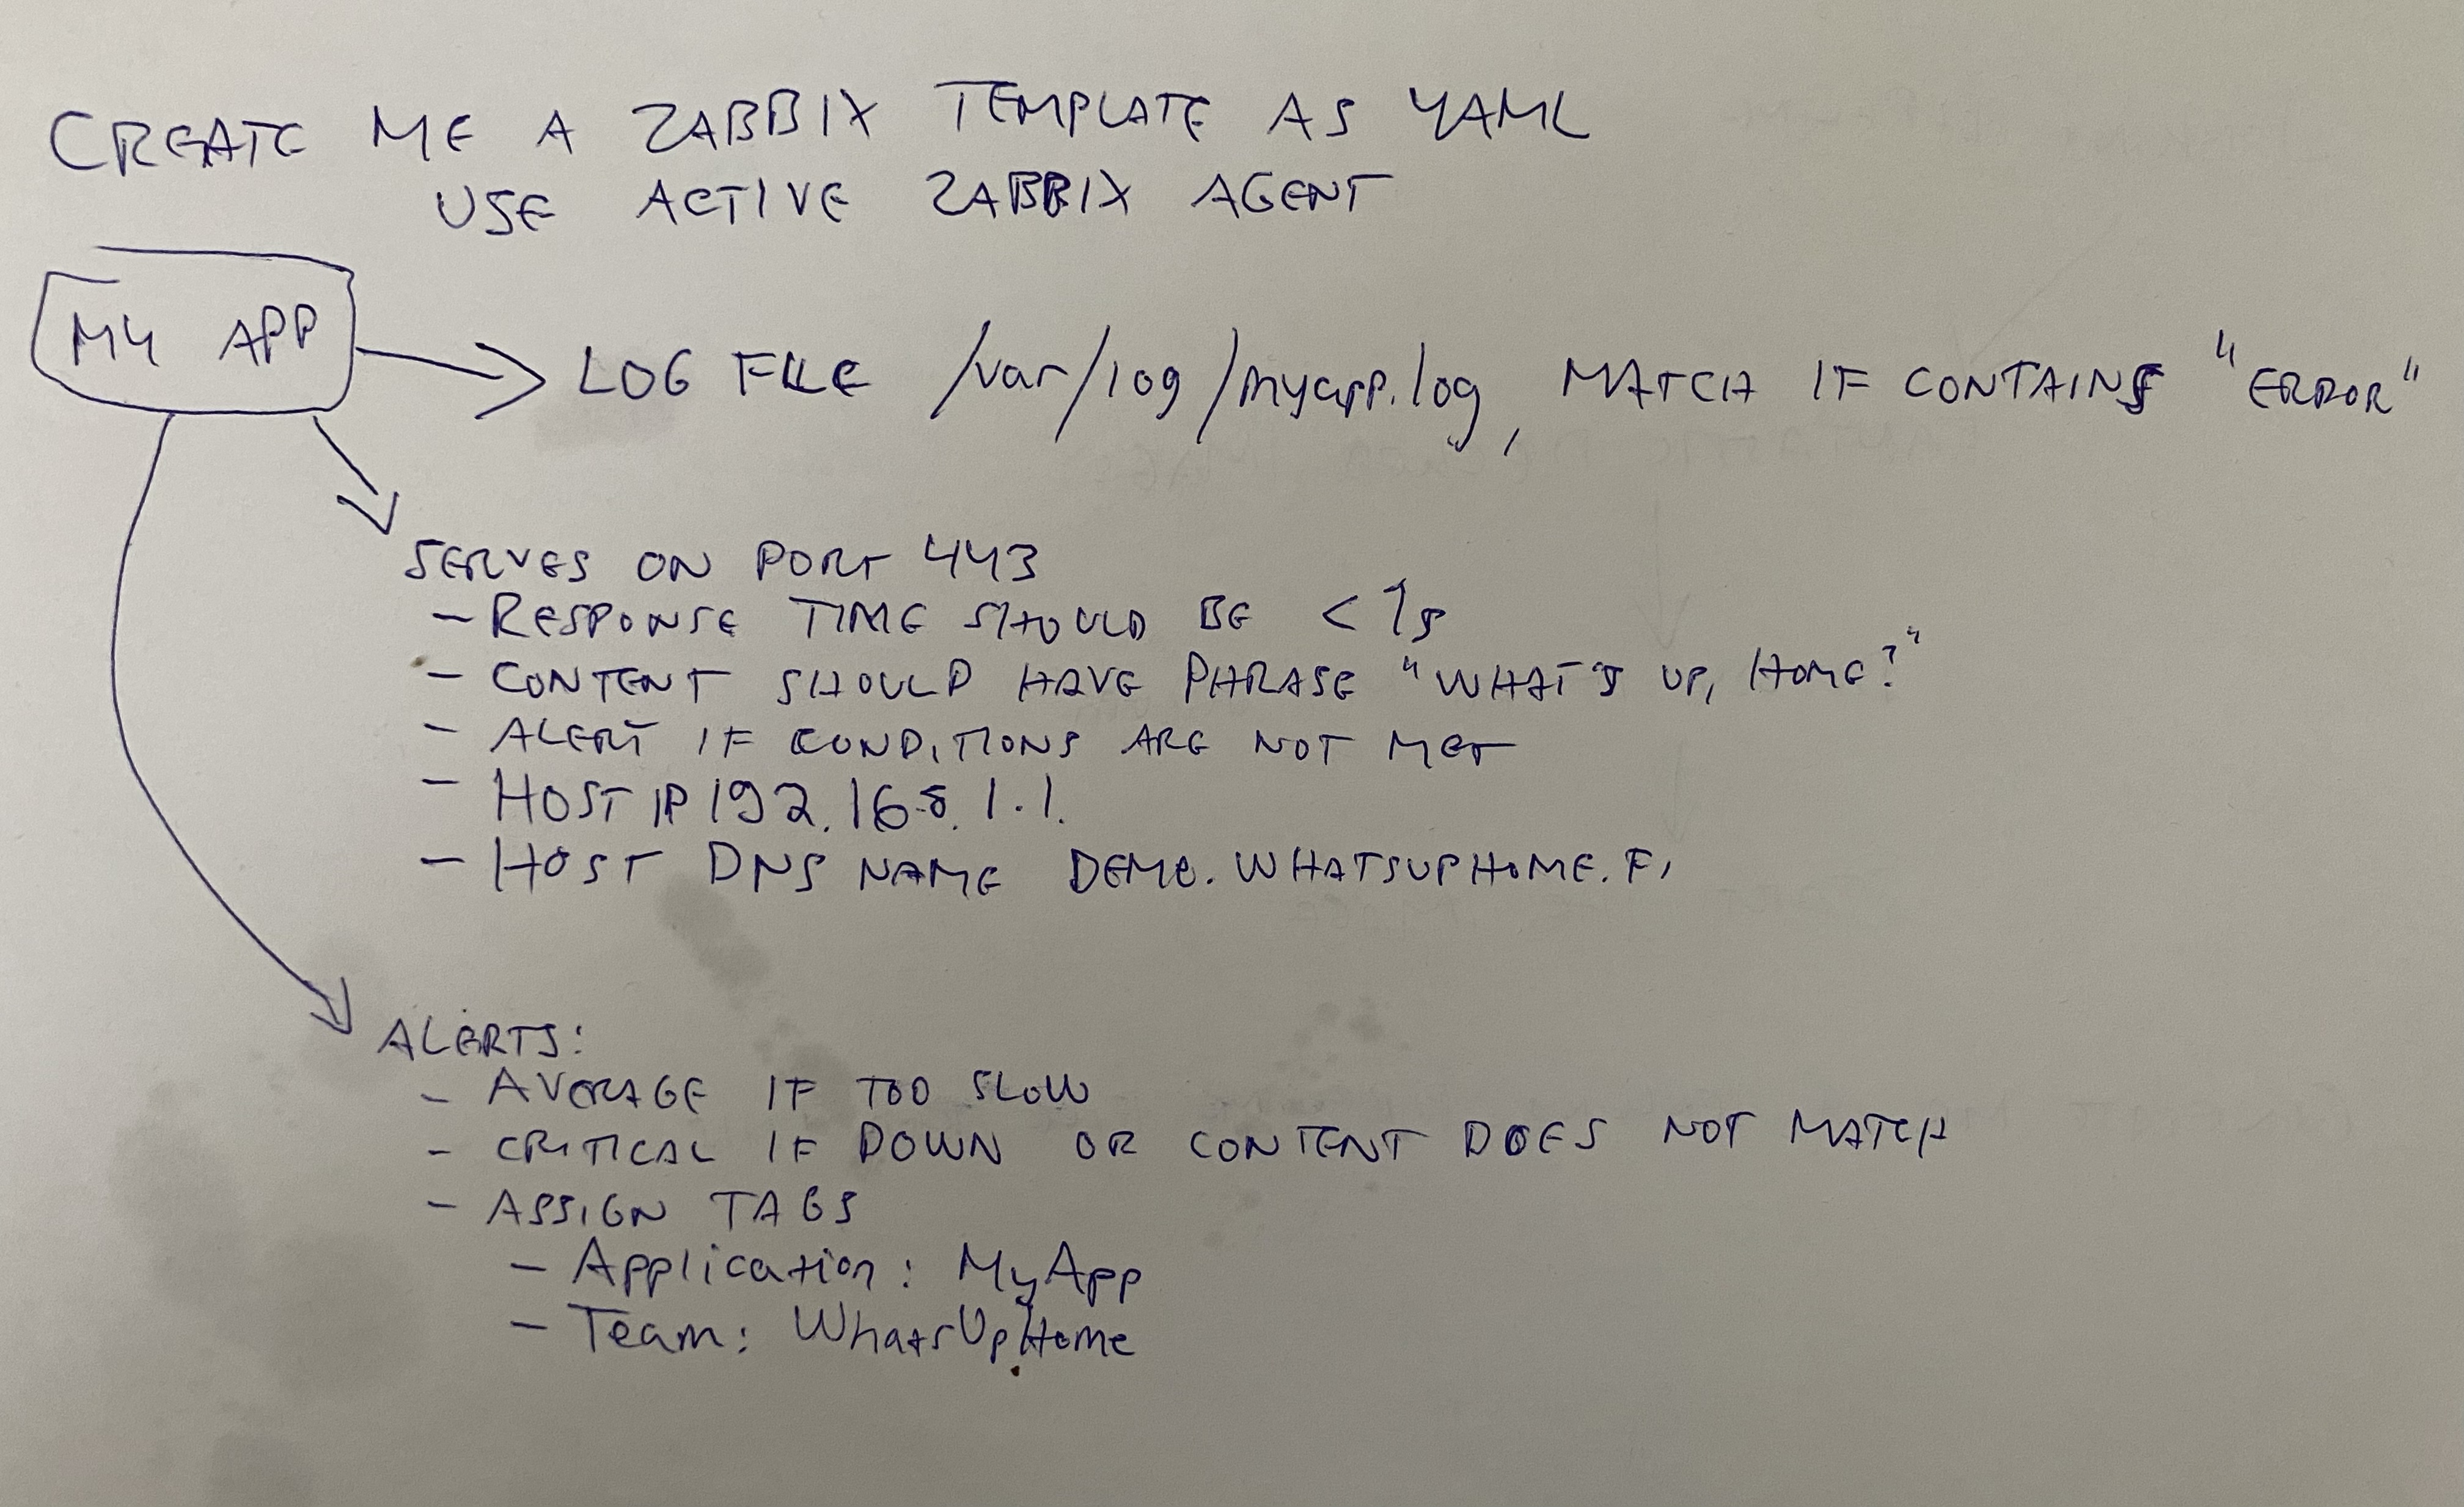 CREATE ME A ZABBIX TEMPLATE AS YAML
USE ACTIVE ZABBIX AGENT
MY APP
LOG FILE /var/log/myapp.log, MATCH IF CONTAINS "ERROR"
SERVES ON PORT 443
- RESPONSE TIME SHOULD BE < 1s
- CONTENT SHOULD HAVE PHRASE "WHAT'S UP, HOME?"
- ALERT IF CONDITIONS ARE NOT MET
- HOST IP 192.168.1.1.
- HOST DNS NAME DEMO.WHATSUPHOME.FI
ALERTS:
- AVERAGE IF TOO SLOW
- CRITICAL IF DOWN OR CONTENT DOES NOT MATCH
- ASSIGN TAGS
- Application: MyApp
- Team: WhatsUpHome